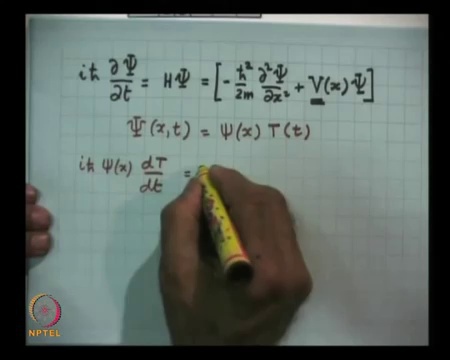 iħ ∂Ψ/∂t = HΨ = [- ħ²/2m ∂²Ψ/∂x² + V(x)Ψ]
Ψ(x,t) = ψ(x) T(t)
iħ ψ(x) dT/dt =
NPTEL